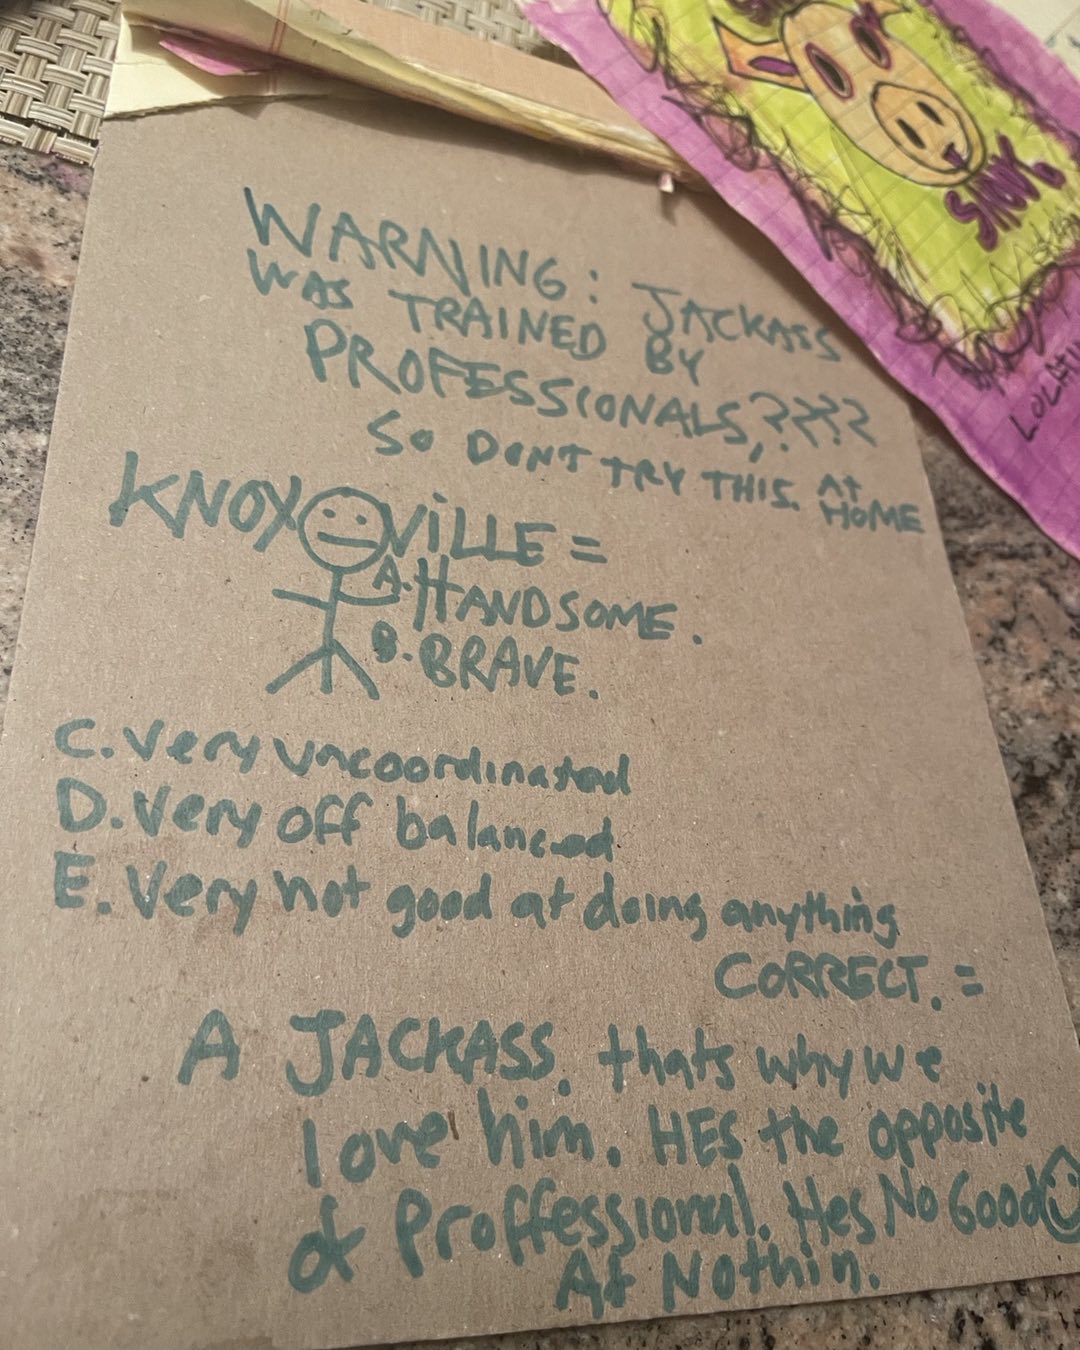 WARNING: JACKASS
WAS TRAINED BY
PROFESSIONALS,????
SO DONT TRY THIS. At
HOME
KNOXVILLE =
A. HANDSOME.
B. BRAVE.
C. Very uncoordinated
D. Very off balanced
E. Very not good at doing anything
CORRECT. =
A JACKASS. thats why we
love him. HES the opposite
of Proffessional. Hes No Good
At Nothin.